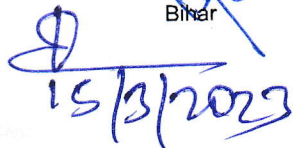 Bihar
15/3/2023